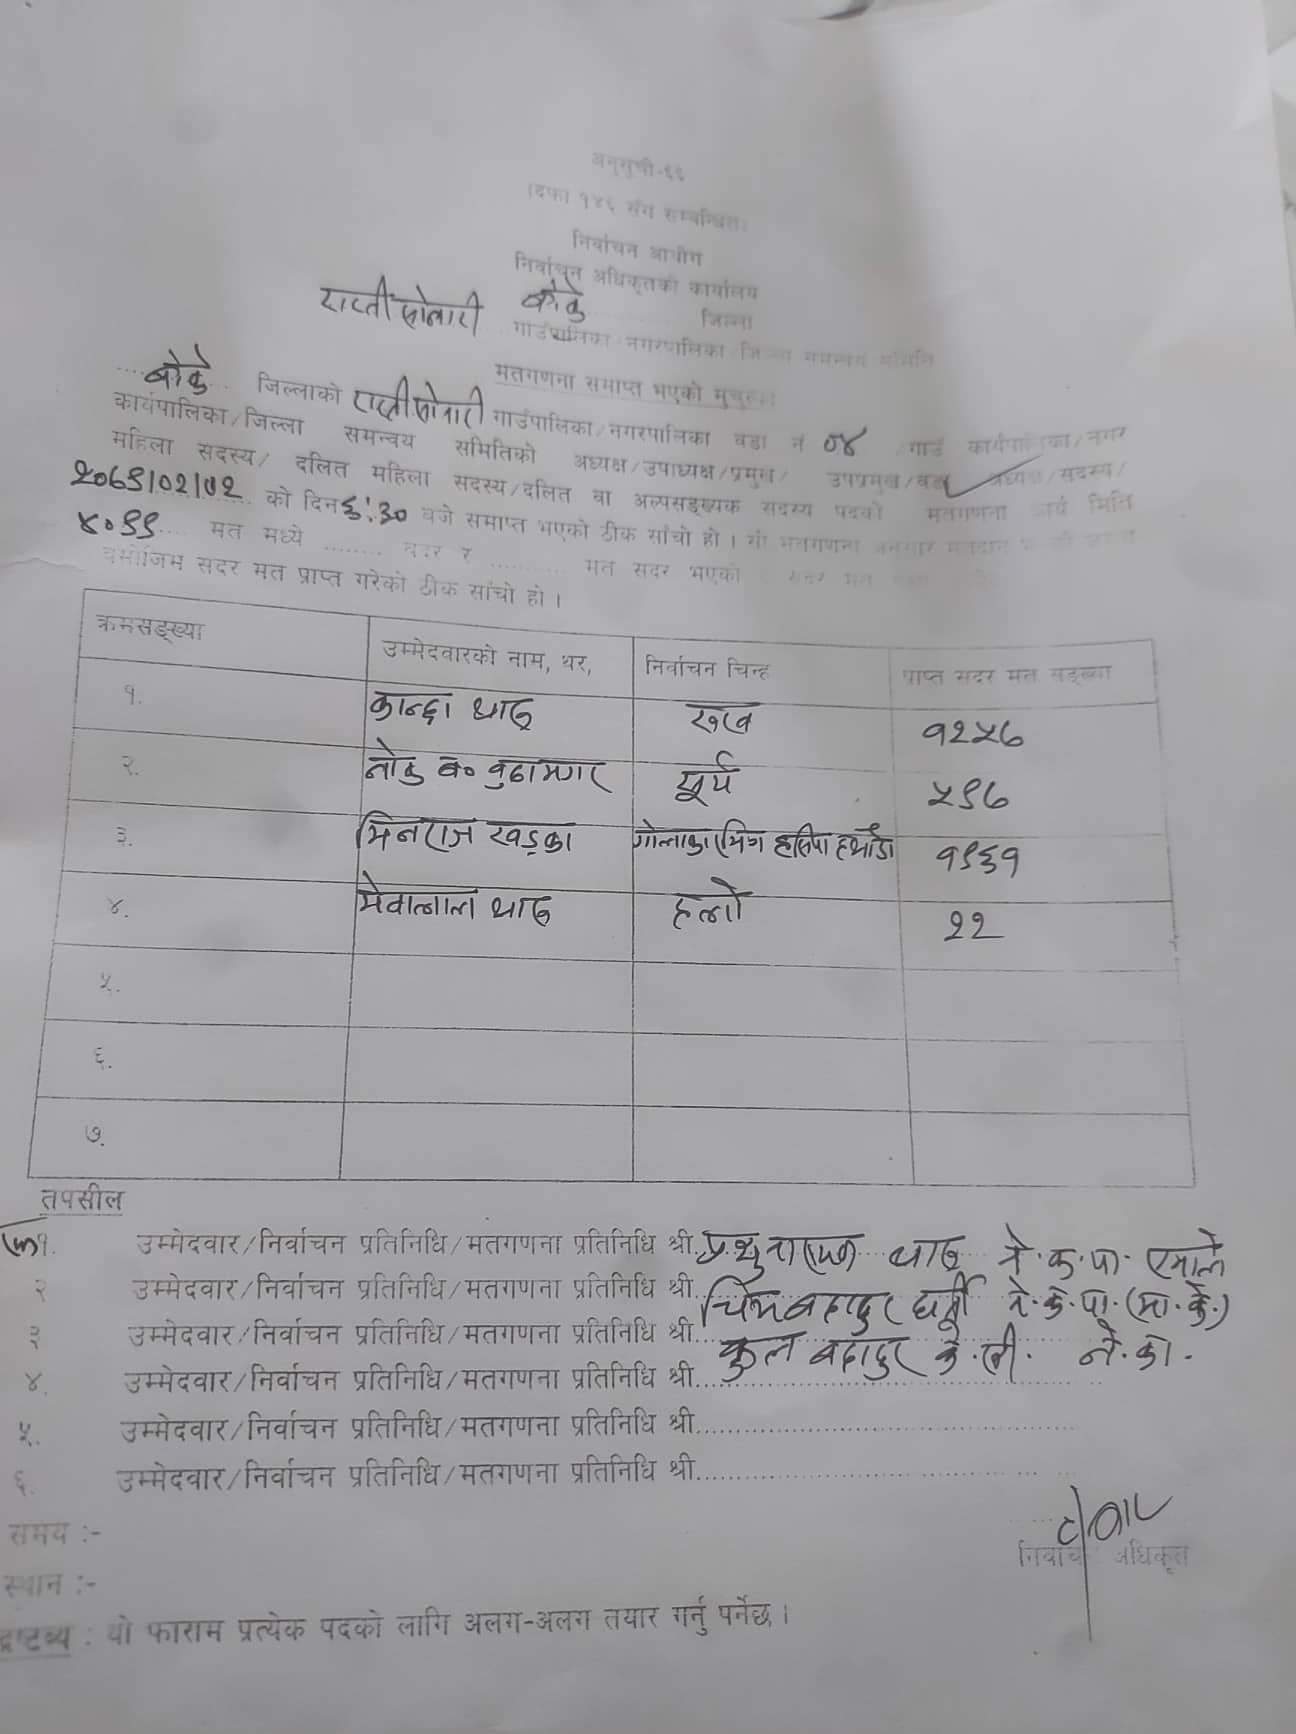 अनुसूची-६६
(दफा १४६ सँग सम्बन्धित)
निर्वाचन आयोग
निर्वाचन अधिकृतको कार्यालय
राप्तीसोनारी बाँके जिल्ला
गाउँपालिका/नगरपालिका/जिल्ला समन्वय समिति
मतगणना समाप्त भएको मुचुल्का
बाँके जिल्लाको राप्तीसोनारी गाउँपालिका/नगरपालिका वडा नं ०४ /गाउँ कार्यपालिका/नगर
कार्यपालिका/जिल्ला समन्वय समितिको अध्यक्ष/उपाध्यक्ष/प्रमुख/ उपप्रमुख/वडा अध्यक्ष/सदस्य/
महिला सदस्य/ दलित महिला सदस्य/दलित वा अल्पसङ्ख्यक सदस्य पदको मतगणना कार्य मिति
२०७९/०२/०२ को दिन ६:३० बजे समाप्त भएको ठीक साँचो हो । यो मतगणना अनुसार
४०९९ मत मध्ये ........ बदर र .......... मत सदर भएको सदर मत
बमोजिम सदर मत प्राप्त गरेको ठीक साँचो हो ।
क्रमसङ्ख्या उम्मेदवारको नाम, थर, निर्वाचन चिन्ह प्राप्त सदर मत सङ्ख्या
१. कान्छा थारू रूख १२५७
२. लोक ब० बुढामगर सूर्य ५९७
३. मिनराज खड्का गोलाकारभित्र हसिया हथौडा १९६१
४. मेवालाल थारू हलो २२
५.
६.
७.
तपसील
१. उम्मेदवार/निर्वाचन प्रतिनिधि/मतगणना प्रतिनिधि श्री. प्रभुनारायण थारू ने.क.पा. एमाले
२ उम्मेदवार/निर्वाचन प्रतिनिधि/मतगणना प्रतिनिधि श्री. चिमबहादुर घर्ती ने.क.पा.(मा.के.)
३ उम्मेदवार/निर्वाचन प्रतिनिधि/मतगणना प्रतिनिधि श्री... कुल बहादुर के.सी. ने.का.
४. उम्मेदवार/निर्वाचन प्रतिनिधि/मतगणना प्रतिनिधि श्री..........
५. उम्मेदवार/निर्वाचन प्रतिनिधि/मतगणना प्रतिनिधि श्री..........
६. उम्मेदवार/निर्वाचन प्रतिनिधि/मतगणना प्रतिनिधि श्री..........
समय :-
निर्वाचन अधिकृत
स्थान :-
द्रष्टव्य : यो फाराम प्रत्येक पदको लागि अलग-अलग तयार गर्नु पर्नेछ ।